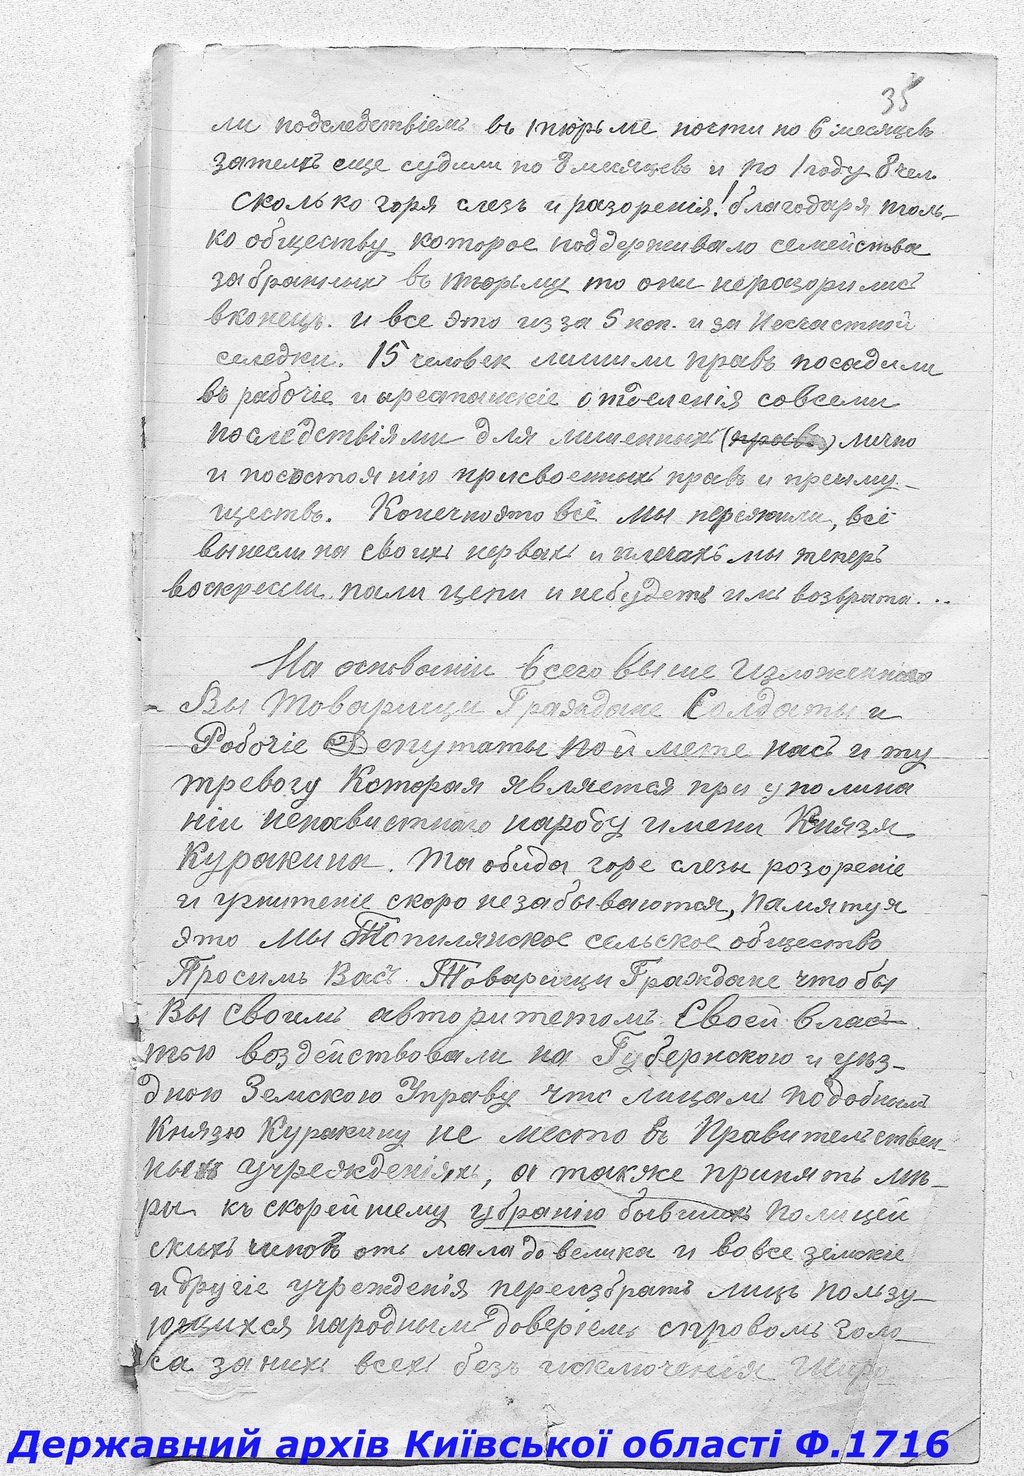 35
ли подследствіемъ въ тюрьме почти по 6 месяцевъ
затемъ еще судили по 8 месяцевъ и по 1 году 8 чел.
Сколько горя слезъ и разоренія! благодаря толь-
ко обществу которое поддерживало семейства
забранныхъ въ тюрьму то они неразорились
вконецъ. и все это изза 5 коп. и за Несчастной
селедки. 15 человек лишили правъ посадили
въ рабочіе и арестанскіе отделенія совсеми
последствіями для лишенныхъ (правъ) лично
и посостоянію присвоенныхъ правъ и преиму-
ществъ. Конечноэто всё мы пережили, всё
вынесли на своихъ нервахъ и плечахъ мы теперь
воскресли пали цепи и небудетъ имъ возврата...
На основаніи Всего Выше Изложеннаго
Вы Товарищи Граждане Солдаты и
Рабочіе Депутаты поймете насъ и ту
тревогу Которая является при упомина
ніи ненавистнаго народу имени Князя
Куракина. Та обида горе слезы розореніе
и угнитеніе скоро незабываются, Памятуя
это Мы Топилянское сельское общество
Просимъ Васъ Товарищи Граждане чтобы
Вы Своимъ авторитетомъ Своей влас-
тью воздействовали на Губернскою и уѣз-
дною Земскою Управу что лицамъ подобнымъ
Князю Куракину не место въ Правительствен-
ныхъ учрежденіяхъ, а также принять мѣ-
ры къ скорейшему убранію бывшихъ Полицей
скихъ чиновъ отъ мала до велика и вовсе земскіе
и другіе учрежденія переизбрать лицъ пользу-
ющихся народнымъ доверіемъ справомъ голо
са за нихъ всехъ безъ исключенія
Державний архів Київської області Ф.1716